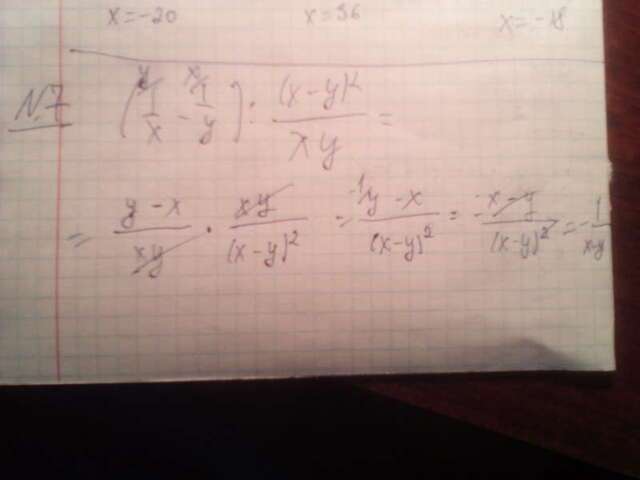 x=-20 x=36 x=-18
N7 (y 1/x - x 1/y) : (x-y)²/xy =
= y-x/xy · xy/(x-y)² = -1 y-x/(x-y)² = -x-y/(x-y)² = -1/x-y